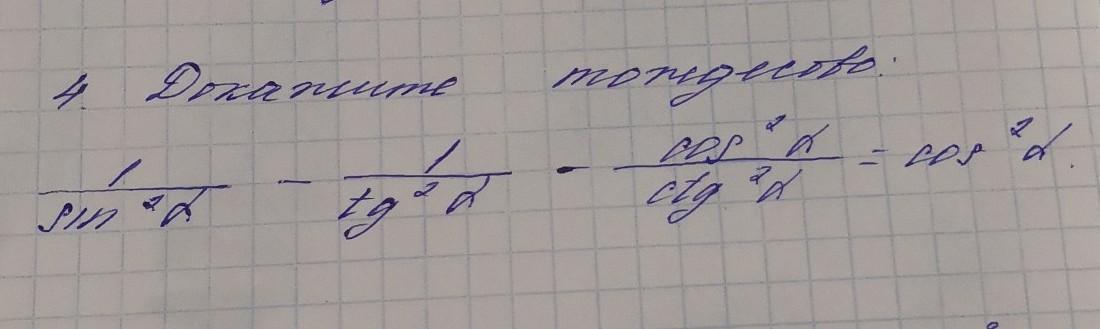 4. Докажите тождество:
1/sin²α - 1/tg²α - cos²α/ctg²α = cos²α.